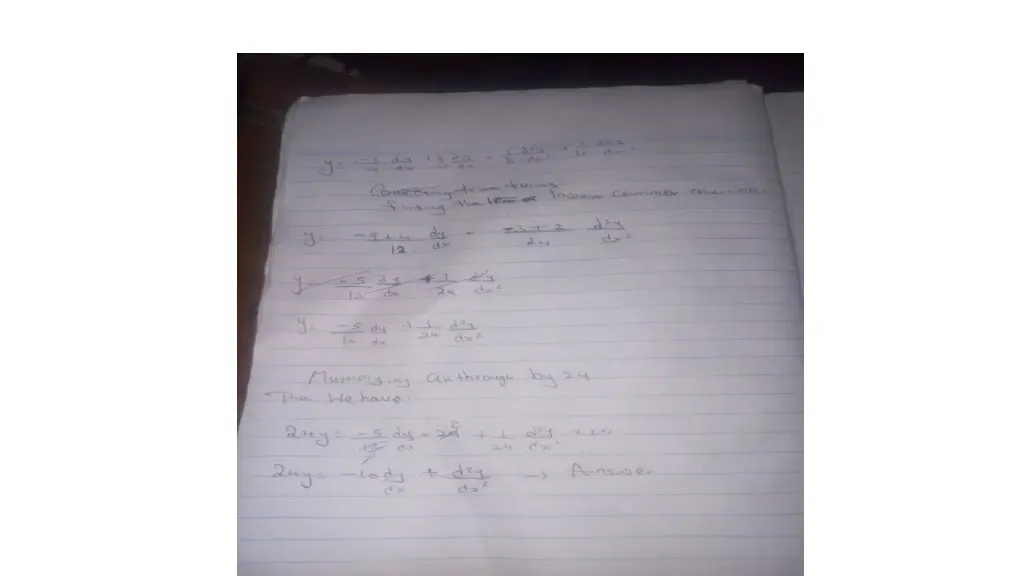 y = -3/4 dy/dx + 1/3 dy/dx - 1/8 d²y/dx² + 1/12 d²y/dx²
finding the lowest common
y = -9+4/12 dy/dx - -3+2/24 d²y/dx²
y = -5/12 dy/dx + 1/24 d²y/dx²
y = -5/12 dy/dx + 1/24 d²y/dx²
Multiplying all through by 24
Then We have
24y = -5/12 dy/dx × 24 2 + 1/24 d²y/dx² × 24
24y = -10 dy/dx + d²y/dx² → Answer